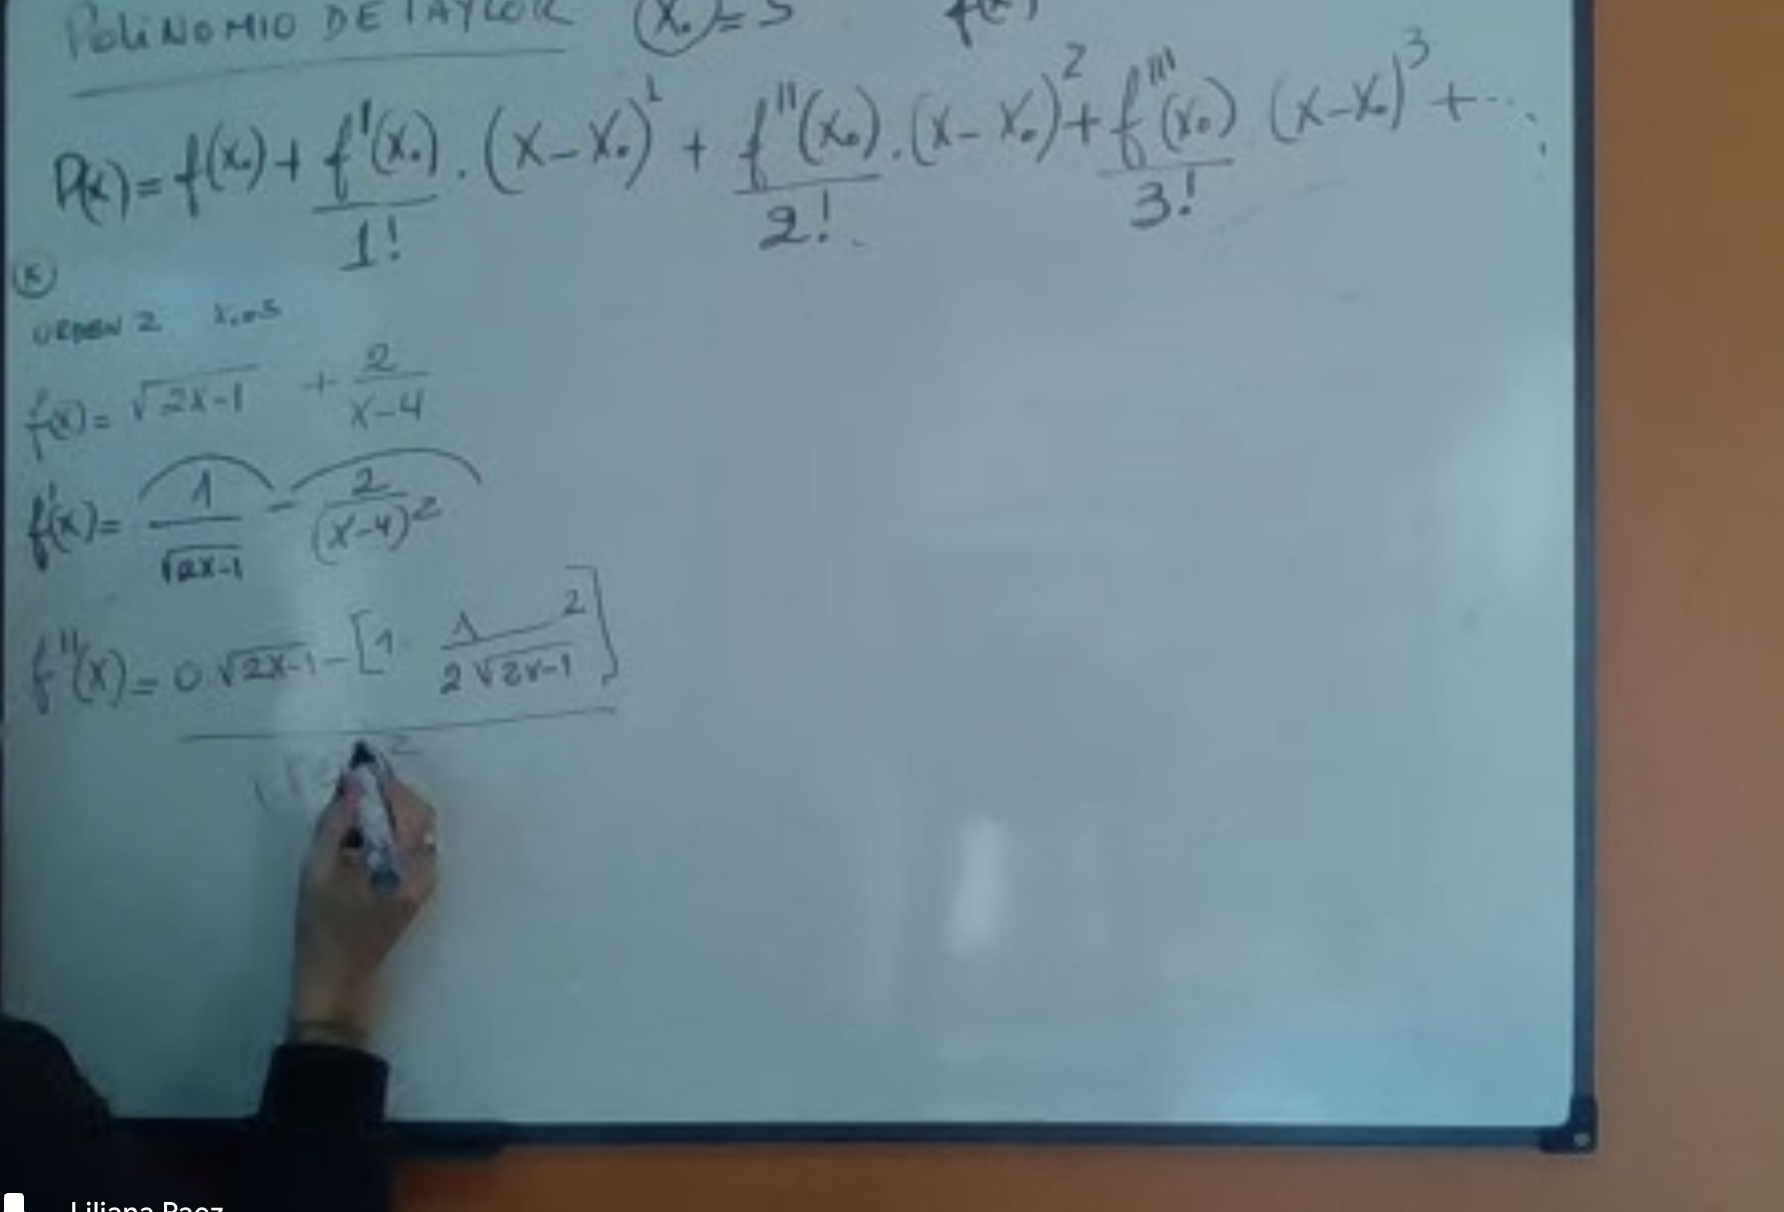 POLINOMIO DE TAYLOR (x₀)=5 f(x)
P(x)=f(x₀)+ f'(x₀)/1! . (x-x₀)¹ + f''(x₀)/2! . (x-x₀)² + f'''(x₀)/3! (x-x₀)³ + ...
ORDEN 2 x₀=5
f(x)= √2x-1 + 2/x-4
f'(x)= 1/√2x-1 - 2/(x-4)²
f''(x)= 0 √2x-1 - [1 · 1/2√2x-1 2]
2
Liliana Paez